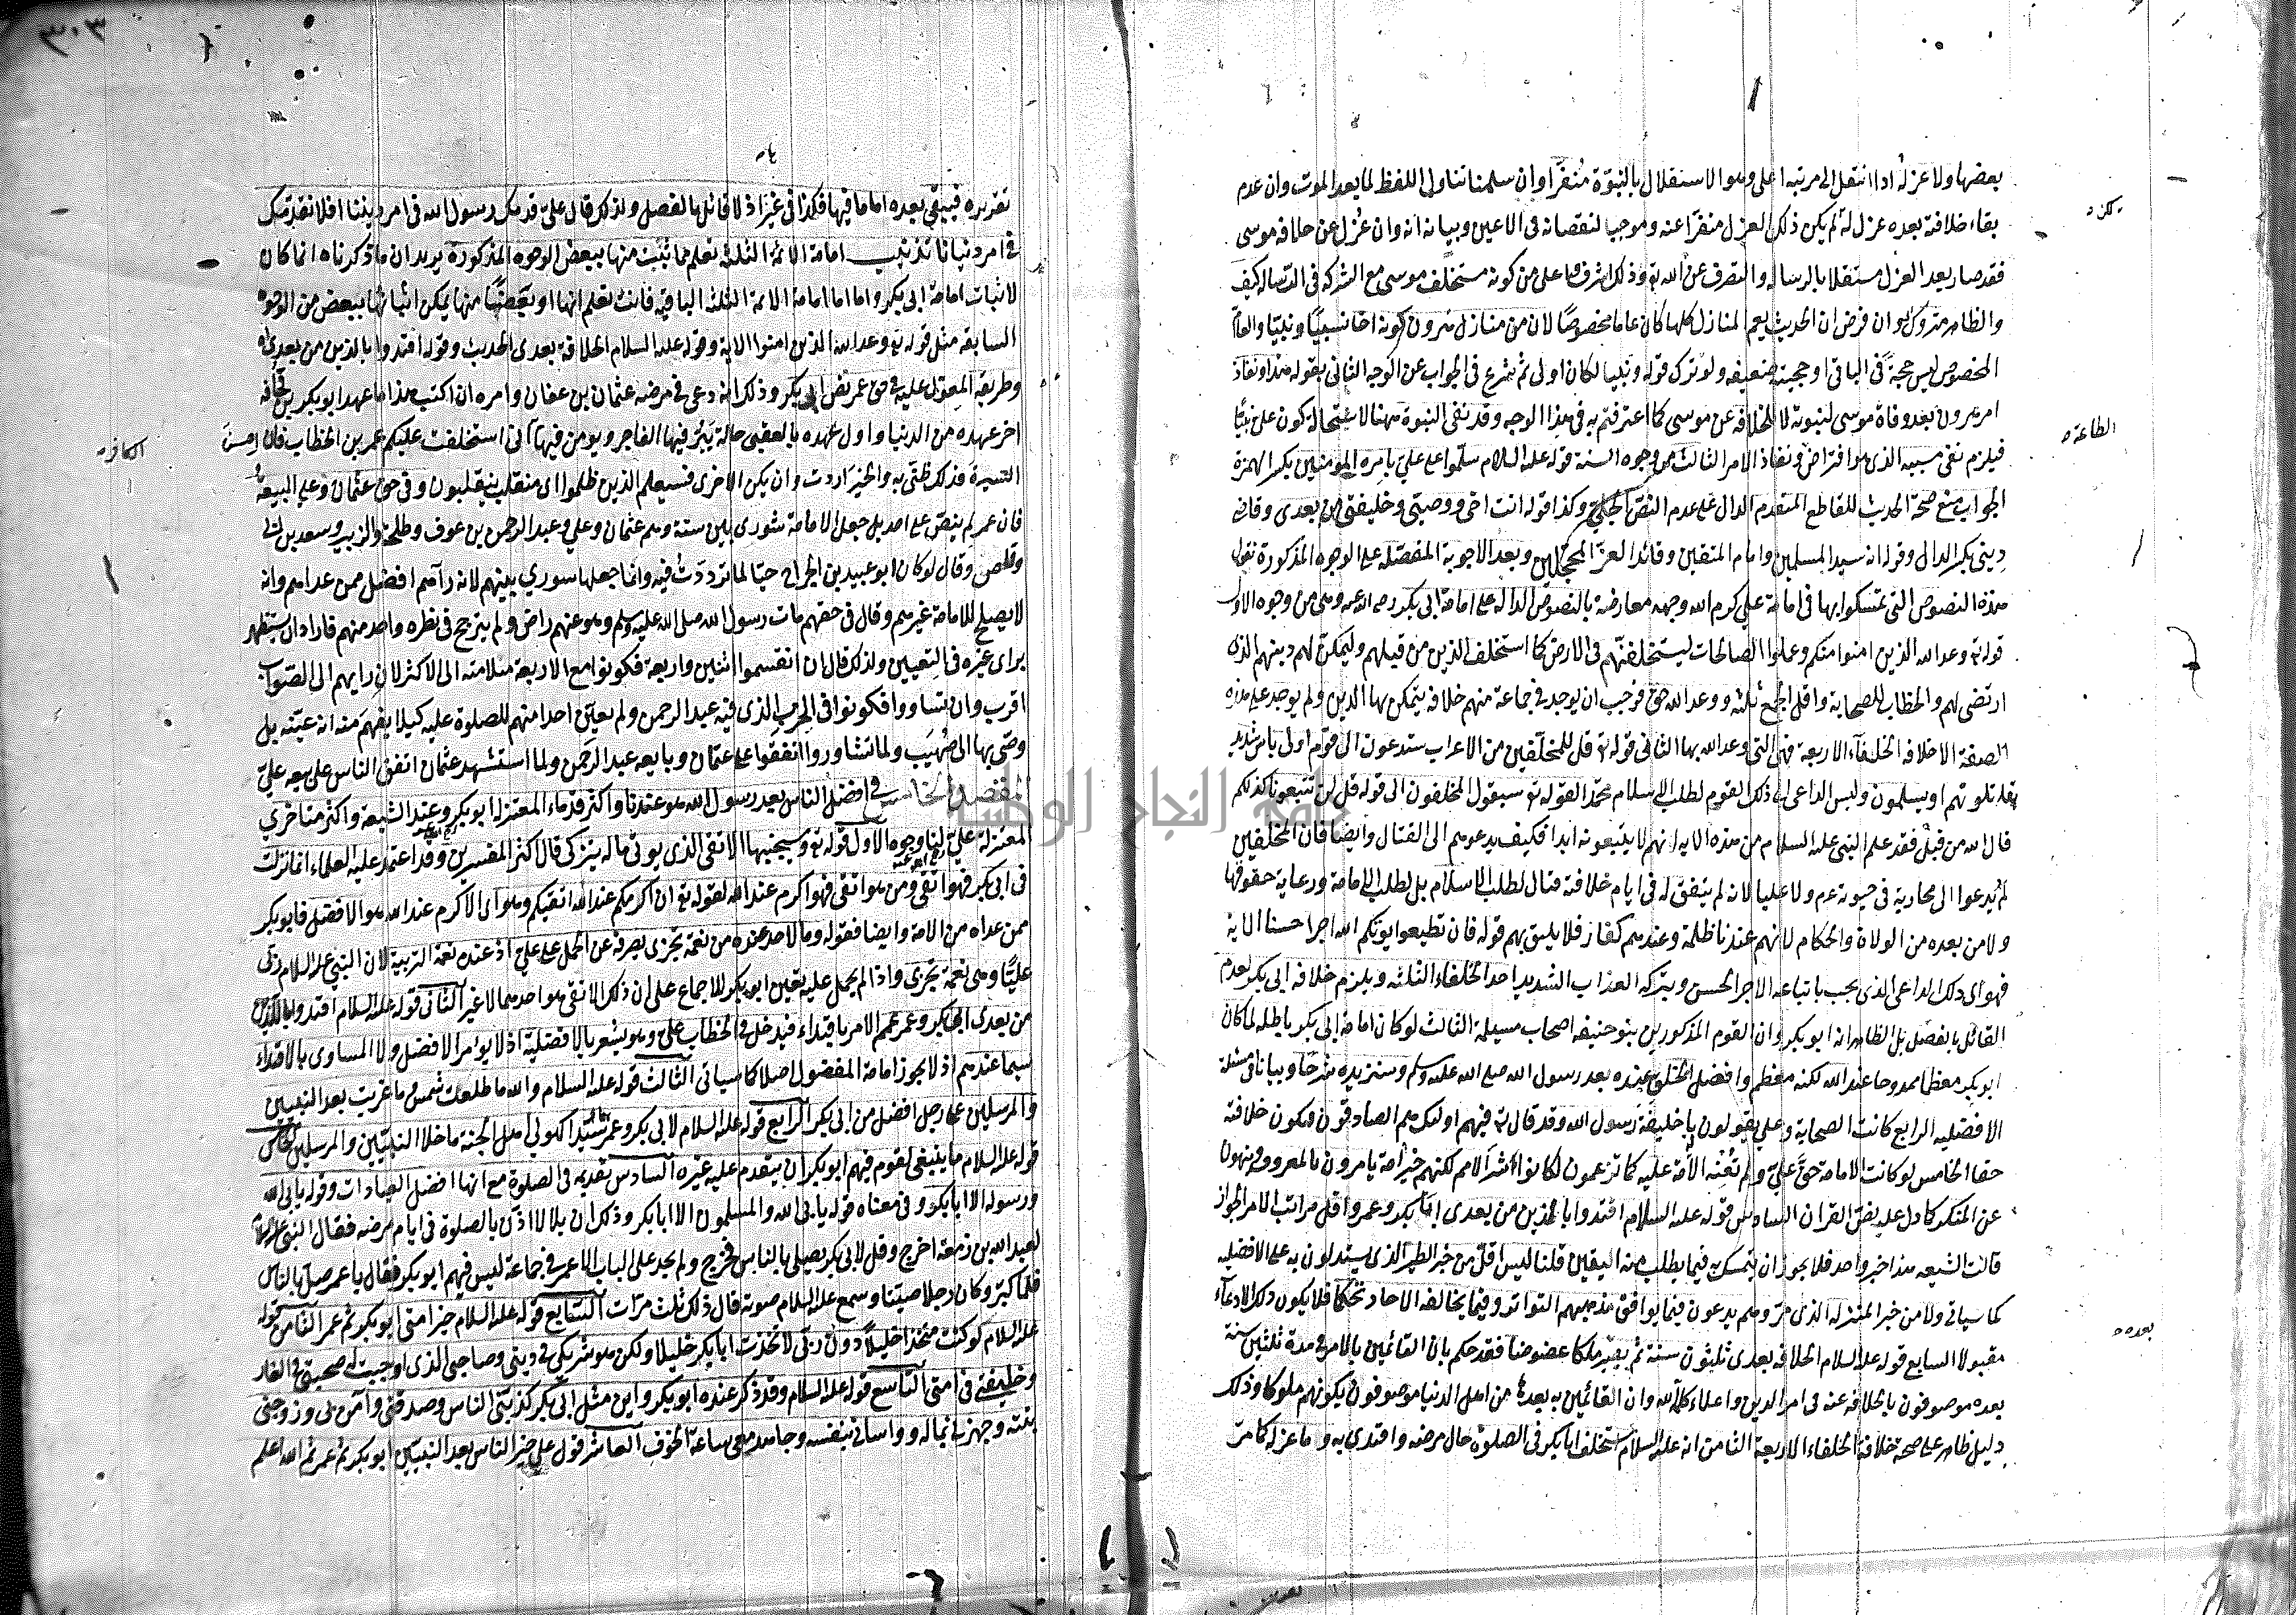 بعضها ولا عزله اذا انتقل الى مرتبة اعلى وهو الاستقلال بالنبوة منفرا وان سلمنا تناول اللفظ لما بعد الموت وان عدم
بقاء خلافته بعده عزل له لم يكن ذلك العزل منفرا عنه وموجبا لنقصانه في الاعين وبيانه انه وان عزل عن خلافة موسى
فقد صار بعد العزل مستقلا بالرسالة والتصرف عن الله تع وذلك اشرف واعلى من كونه مستخلف موسى مع الشركة في الرسالة كيف
والظاهر متروك لو ان فرض ان الحديث يعم المنازل كلها كان عاما مخصوصا لان من منازل هرون كونه اخا نسبيا ونبيا والعام
المخصوص ليس حجة في الباقي او حجيته ضعيفه ولو ترك قوله ونبيا لكان اولى ثم شرع في الجواب عن الوجه الثاني بقوله هذا ونفاذ
امر هرون بعد وفاة موسى لنبوته لا للخلافة عن موسى كما اعترفتم به في هذا الوجه وقد نفى النبوة ههنا لاستحالة كون علي نبيا
فيلزم نفي مسببه الذي هو افتراض ونفاذ الامر الثالث من وجوه السنة قوله عليه السلام سلموا على علي بامرة المؤمنين بكسر الهمزة
الجواب منع صحة الحديث للقاطع المتقدم الدال على عدم النص الجلي وكذا قوله انت اخي ووصيي وخليفتي من بعدي وقاضي
ديني بكسر الدال وقوله انه سيد المسلمين وامام المتقين وقائد الغر المحجلين وبعد الاجوبة المفصلة على الوجوه المذكورة نقول
هذه النصوص التي تمسكوا بها في امامة علي كرم الله وجهه معارضة بالنصوص الدالة على امامة ابي بكر رضي الله عنه وهي من وجوه الاول
قوله تع وعد الله الذين امنوا منكم وعملوا الصالحات ليستخلفنهم في الارض كما استخلف الذين من قبلهم وليمكنن لهم دينهم الذي
ارتضى لهم والخطاب للصحابة واقل الجمع ثلثة ووعد الله حق فوجب ان يوجد في جماعة منهم خلافة يتمكن بها الدين ولم يوجد على هذه
الصفة الا خلافة الخلفاء الاربعة فهي التي وعد الله بها الثاني قوله تع قل للمخلفين من الاعراب ستدعون الى قوم اولي باس شديد
تقاتلونهم او يسلمون وليس الداعي الى ذلك القوم لطلب الاسلام محمد القوله تع سيقول المخلفون الى قوله قل لن تتبعونا كذلكم
قال الله من قبل فقد علم النبي عليه السلام من هذه الاية انهم لا يتبعونه ابدا فكيف يدعوهم الى القتال وايضا فان المخلفين
لم يدعوا الى محاربة في حيوته عم ولا عليا لانه لم يتفق له في ايام خلافته قتال لطلب الاسلام بل لطلب الامامة ورعاية حقوقها
ولا من بعده من الولاة والحكام لانهم عندنا ظلمة وعندهم كفار فلا يليق بهم قوله فان تطيعوا يوتكم الله اجرا حسنا الاية
فهو اي ذلك الداعي الذي يجب باتباعه الاجر الحسن وبتركه العذاب الشديد احد الخلفاء الثلثة ويلزم خلافة ابي بكر لعدم
القائل بالفصل بل الظاهر انه ابو بكر وان القوم المذكورين بنو حنيفة اصحاب مسيلمة الثالث لو كان امامة ابي بكر باطلة لما كان
ابو بكر معظما ممدوحا عند الله لكنه معظم وافضل الخلق عنده بعد رسول الله صلى الله عليه وسلم وسنزيده شرحا وبيانا في مسئلة
الافضلية الرابع كانت الصحابة وعلي يقولون يا خليفة رسول الله وقد قال تع فيهم اولئك هم الصادقون فتكون خلافته
حقا الخامس لو كانت الامامة حق علي ولم تعنه الامة عليه كما تزعمون لكانوا اشر الامم لكنهم خير امة يامرون بالمعروف وينهون
عن المنكر كما دل عليه نص القران السادس قوله عليه السلام اقتدوا بالذين من بعدي ابي بكر وعمر واقل مراتب الامر الجواز
قالت الشيعه هذا خبر واحد فلا يجوز ان يتمسك به فيما يطلب منه اليقين قلنا ليس اقل من خبر الطير الذي يستدلون به على الافضلية
كما سياتي ولا من خبر المنزلة الذي مر وهم يدعون فيما يوافق مذهبهم التواتر وفيما يخالفه الاحاد تحكما فلا يكون ذلك الادعاء
مقبولا السابع قوله عليه السلام الخلافة بعدي ثلثون سنة ثم يصير ملكا عضوضا فقد حكم بان القائمين بالامر في مدة ثلثين سنة
بعده موصوفون بالخلافة عنه في امر الدين واعلاء كلمة الله وان القائمين به بعدها من اهل الدنيا موصوفون بكونهم ملوكا وذلك
دليل ظاهر على صحة خلافة الخلفاء الاربعة الثامن انه عليه السلام استخلف ابا بكر في الصلوة حال مرضه واقتدي به وما عزله كما مر
الطاعة
بعده
تقريره فيبقى بعده اماما فيها فكذا في غيرها اذ لا قائل بالفصل ولذلك قال علي قدمك رسول الله في امر ديننا افلا نقدمك
في امر دنيانا تذنيب امامة الائمة الثلثة تعلم مما ثبت منها ببعض الوجوه المذكورة يريد ان ما ذكرناه انما كان
لاثبات امامة ابي بكر واما امامة الائمة الثلثة الباقية فانت تعلم انها او بعضها منها يمكن اثباتها ببعض من الوجوه
السابقة مثل قوله تع وعد الله الذين امنوا الاية وقوله عليه السلام الخلافة بعدي الحديث وقوله اقتدوا بالذين من بعدي
وطريقة المعول عليه في حق عمر نص ابي بكر وذلك انه دعى في مرضه عثمان بن عفان وامره ان اكتب هذا ما عهد ابو بكر بن قحافة
اخر عهده من الدنيا واول عهده بالعقبى حالة يبر فيها الفاجر ويومن فيها الكافر اني استخلفت عليكم عمر بن الخطاب فان احسن
السيرة فذلك ظني به والخير اردت وان يكن الاخرى فسيعلم الذين ظلموا اي منقلب ينقلبون وفي حق عثمان وعلي البيعة
فان عمر لم ينص على احد بل جعل الامامة شورى بين ستة وهم عثمان وعلي وعبد الرحمن بن عوف وطلحة والزبير وسعد بن ابي
وقاص وقال لو كان ابو عبيد بن الجراح حيا لما ترددت فيه وانما جعلها شوري بينهم لانه رآهم افضل ممن عداهم وانه
لا يصلح للامامة غيرهم وقال في حقهم مات رسول الله صلى الله عليه وسلم وهو عنهم راض ولم يترجح في نظره واحد منهم فاراد ان يستظهر
براي غيره في التعيين ولذلك قال ان انقسموا اثنين واربعة فكونوا مع الاربعة سلامته الى الاكثر لان رايهم الى الصواب
اقرب وان تساووا فكونوا في الحزب الذي فيه عبد الرحمن ولم يعين احدا منهم للصلوة عليه كيلا يفهم منه انه عينه بل
وصى بها الى صهيب ولما تشاوروا اتفقوا على عثمان وبايعه عبد الرحمن ولما استشهد عثمان اتفق الناس على بيعة علي
المقصد الخامس في افضل الناس بعد رسول الله هو عندنا واكثر قدماء المعتزلة ابو بكر وعند الشيعة واكثر متاخري
المعتزلة علي لنا وجوه الاول قوله تع وسيجنبها الاتقى الذي يوتي ماله يتزكى قال اكثر المفسرين وقد اعتمد عليه العلماء انها نزلت
في ابي بكر فهو اتقى ومن هو اتقى فهو اكرم عند الله لقوله تع ان اكرمكم عند الله اتقيكم وهو اي الاكرم عند الله هو الافضل فابو بكر
ممن عداه من الامة وايضا فقوله وما لاحد عنده من نعمة تجزى يصرفه عن الحمل على علي اذ عنده نعمة التربية لان النبي عليه السلام ربى
عليا وهي نعمة تجزى واذا لم يحمل عليه تعين ابو بكر للاجماع على ان ذلك الاتقى هو احدهما لا غير الثاني قوله عليه السلام اقتدوا بالذين
من بعدي ابي بكر وعمر عمم الامر بالاقتداء فيدخل في الخطاب علي وهو يشعر بالافضلية اذ لا يومر الافضل ولا المساوي بالاقتداء
سيما عندهم اذ لا يجوز امامة المفضول اصلا كما سياتي الثالث قوله عليه السلام والله ما طلعت شمس وما غربت بعد النبيين
والمرسلين على رجل افضل من ابي بكر الرابع قوله عليه السلام لابي بكر وعمر سيدا كهول اهل الجنة ما خلا النبيين والمرسلين الخامس
قوله عليه السلام ما ينبغي لقوم فيهم ابو بكر ان يتقدم عليه غيره السادس تقديمه في الصلوة مع انها افضل العبادات وقوله يابى الله
ورسوله الا ابا بكر وفي معناه قوله يابى الله والمسلمون الا ابا بكر وذلك ان بلالا اذن بالصلوة في ايام مرضه فقال النبي عليه السلام
لعبد الله بن زمعة اخرج وقل لابي بكر يصلي بالناس فخرج ولم يجد على الباب الا عمر في جماعة ليس فيهم ابو بكر فقال يا عمر صل بالناس
فلما كبر وكان رجلا صيتا وسمع عليه السلام صوته قال ذلك ثلث مرات السابع قوله عليه السلام خير امتي ابو بكر ثم عمر الثامن قوله
عليه السلام لو كنت متخذا خليلا دون ربي لاتخذت ابا بكر خليلا ولكن هو شريكي في ديني وصاحبي الذي اوجبت له صحبتي في الغار
وخليفتي في امتي التاسع قوله عليه السلام وقد ذكر عنده ابو بكر واين مثل ابي بكر كذبني الناس وصدقني وآمن بي وزوجني
بنته وجهز لي بماله وواساني بنفسه وجاهد معي ساعة الخوف العاشر قول علي خير الناس بعد النبيين ابو بكر ثم عمر ثم الله اعلم
الكافر
جامعة النجاح الوطنية